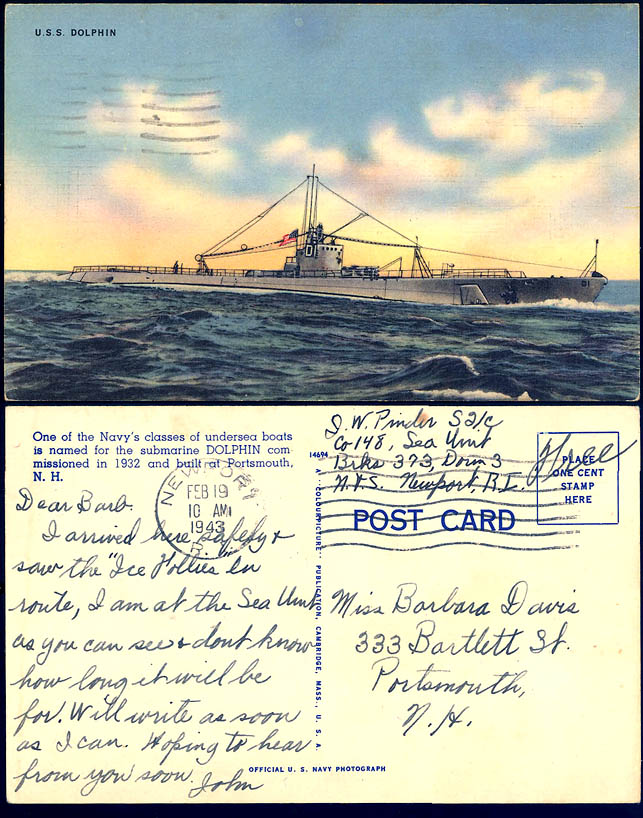 U.S.S. DOLPHIN
D
D1
One of the Navy's classes of undersea boats
is named for the submarine DOLPHIN com-
missioned in 1932 and built at Portsmouth,
N. H.
Dear Barb.
I arrived here safely &
saw the "Ice Follies" en
route, I am at the Sea Unit
as you can see & dont know
how long it will be
for. Will write as soon
as I can. Hoping to hear
from you soon. John
NEWPORT
FEB 19
10 AM
1943
R.I.
14694
A "COLOURPICTURE" PUBLICATION, CAMBRIDGE, MASS., U. S. A.
J. W. Pinder S2/c
Co 148, Sea Unit
Brks 373, Dorm 3
N.T.S. Newport, R.I.
Free
PLACE
ONE CENT
STAMP
HERE
POST CARD
Miss Barbara Davis
333 Bartlett St.
Portsmouth,
N.H.
OFFICIAL U. S. NAVY PHOTOGRAPH